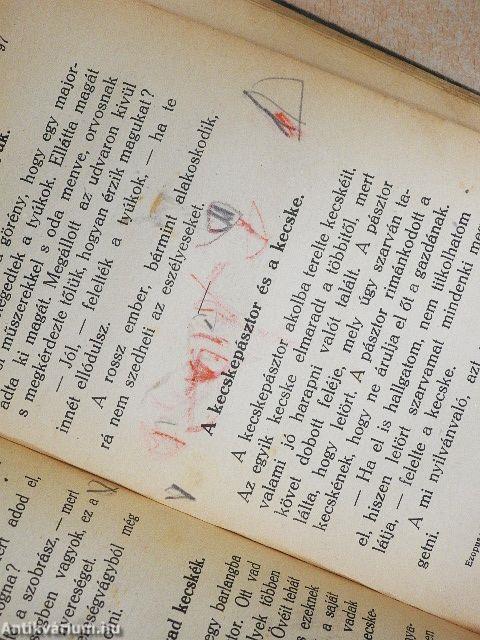 97
görény, hogy egy major-
tyúkok. Ellátta magát
műszerekkel s oda menve, orvosnak
adta ki magát. Megállott az udvaron kívül
s megkérdezte tőlük, hogyan érzik magukat?
— Jól, — felelték a tyúkok, — ha te
innét ellódulsz.
A rossz ember, bármint alakoskodik,
rá nem szedheti az eszélyeseket.
A kecskepásztor és a kecske.
A kecskepásztor akolba terelte kecskéit.
Az egyik kecske elmaradt a többitől, mert
valami jó harapni valót talált. A pásztor
követ dobott feléje, mely úgy szarván ta-
lálta, hogy letört. A pásztor rimánkodott a
kecskének, hogy ne árulja el őt a gazdának.
— Ha el is hallgatom, nem titkolhatóm
el, hiszen letört szarvamat mindenki
látja, — felelte a kecske.
A mi nyilvánvaló, azt
getni.
adod el,
a szobrász, — mert
vagyok, ez a
még
kecskék.
egy barlangba
Ott vad
többen
ezeknek
a saját
vadak
Antikvárium.hu